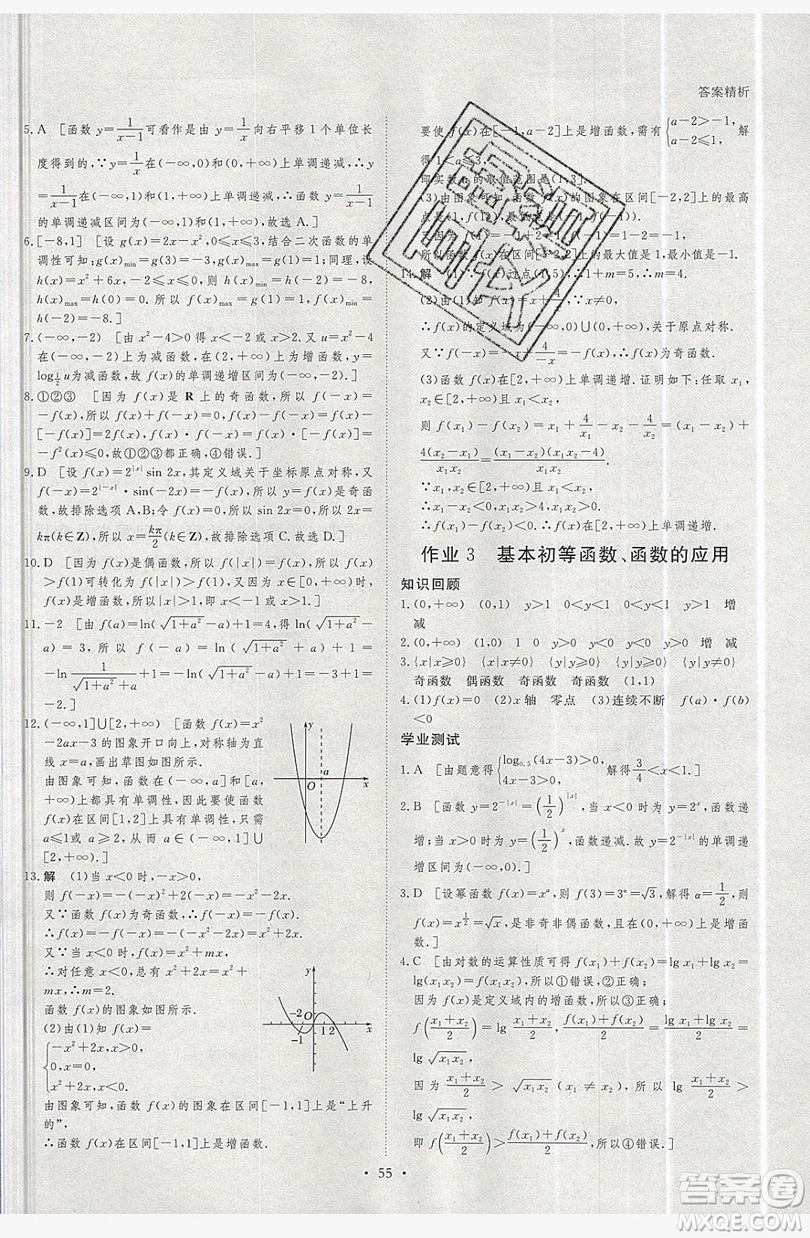 答案精析
5.A [函数 y=1/(x-1)可看作是 y=1/x 向右平移 1 个单位长
度得到的,∵y=1/x在(-∞,0)和(0,+∞)上单调递减,∴y
=1/(x-1)在(-∞,1)和(1,+∞)上单调递减,∴函数 y=1/(x-1)
的单调递减区间为(-∞,1)和(1,+∞),故选 A.]
6.[-8,1] [设 g(x)=2x-x²,0≤x≤3,结合二次函数的单
调性可知:g(x)min=g(3)=-3,g(x)max=g(1)=1;同理,设
h(x)=x²+6x,-2≤x≤0,则 h(x)min=h(-2)=-8,
h(x)max=h(0)=0.所以 f(x)max=g(1)=1,f(x)min=
h(-2)=-8.]
7.(-∞,-2) [由 x²-4>0得 x<-2 或 x>2.又 u=x²-4
在(-∞,-2)上为减函数,在(2,+∞)上为增函数,y=
log½u为减函数,故 f(x)的单调递增区间为(-∞,-2).]
8.①②③ [因为 f(x)是 R 上的奇函数,所以 f(-x)=
-f(x),所以 f(x)+f(-x)=0,f(-x)-f(x)=-2f(x),
[-f(x)-f(x)=-2f(x)],所以 f(x)·f(-x)=
-f²(x)≤0,故①②③都正确,④错误.]
9.D [设 f(x)=2^|x|sin 2x,其定义域关于坐标原点对称,又
f(-x)=2^|-x|·sin(-2x)=-f(x),所以 y=f(x)是奇函
数,故排除选项 A,B;令 f(x)=0,所以 sin 2x=0,所以 2x=
kπ(k∈Z),所以 x=kπ/2(k∈Z),故排除选项 C.故选 D.]
11.-2 [由 f(a)=ln(√(1+a²)-a)+1=4,得 ln(√(1+a²)-a)
=3,所以 f(-a)=ln(√(1+a²)+a)+1=
-ln 1/(√(1+a²)+a)+1=-ln(√(1+a²)-a)+1=-3+1=
-2.]
12.(-∞,1]∪[2,+∞) [函数 f(x)=x²
-2ax-3 的图象开口向上,对称轴为直
线 x=a,画出草图如图所示.
由图象可知,函数在(-∞,a]和[a,
+∞)上都具有单调性,因此要使函数
f(x)在区间[1,2]上具有单调性,只需
a≤1 或 a≥2,从而 a∈(-∞,1]∪
[2,+∞).]
y
a
O
x
13.解 (1)当 x<0 时,-x>0,
则 f(-x)=-(-x)²+2(-x)=-x²-2x.
又∵函数 f(x)为奇函数,∴f(-x)=-f(x),
∴f(x)=-f(-x)=-(-x²-2x)=x²+2x.
又∵当 x<0 时,f(x)=x²+mx,
∴对任意 x<0,总有 x²+2x=x²+mx,
∴m=2.
函数 f(x)的图象如图所示.
(2)由(1)知 f(x)=
{-x²+2x,x>0,
0,x=0,
x²+2x,x<0,
y
-2
O
1 2
x
-1
由图象可知,f(x)的图象在区间[-1,1]上是“上升
的”,
∴函数 f(x)在区间[-1,1]上是增函数.
要使 f(x)在[-1,a-2]上是增函数,需有{a-2>-1, a-2≤1, 解
得 1<a≤3,
即实数 a 的取值范围是(1,3].
(3)由图象可知,函数 f(x)的图象在区间[-2,2]上的最高
所以函数 f(x)在区间[-2,2]上的最大值是 1,最小值是-1.
14.解 (1)∵f(x)过点(1,5),∴1+m=5,∴m=4.
(2)由(1)可知 f(x)=x+4/x,∵x≠0,
∴f(x)的定义域为(-∞,0)∪(0,+∞),关于原点对称.
(3)函数 f(x)在[2,+∞)上单调递增.证明如下:任取 x₁,
x₂∈[2,+∞)且 x₁<x₂,
则 f(x₁)-f(x₂)=x₁+4/x₁-x₂-4/x₂=(x₁-x₂)+
4(x₂-x₁)/(x₁x₂)=(x₁-x₂)(x₁x₂-4)/(x₁x₂).
∴f(x)在[2,+∞)上单调递增.
作业 3 基本初等函数、函数的应用
知识回顾
1.(0,+∞) (0,1) 0 y>1 0<y<1 0<y<1 y>1 增
减
2.(0,+∞) (1,0) 1 y>0 y<0 y<0 y>0 增 减
3.{x|x≥0} {x|x≠0} {y|y≥0} {y|y≥0} {y|y≠0}
奇函数 偶函数 奇函数 奇函数 (1,1)
4.(1)f(x)=0 (2)x 轴 零点 (3)连续不断 f(a)·f(b)
<0
学业测试
1.A [由题意得{log0.5(4x-3)>0, 4x-3>0, 解得3/4<x<1.]
2.B [函数 y=2^-|x|=(1/2)^|x|,当 x<0 时,为 y=2^x,函数递
增;当 x>0 时,为 y=(1/2)^x,函数递减.故 y=2^-|x|的单调递
增区间为(-∞,0).]
3.D [设幂函数 f(x)=x^α,则 f(3)=3^α=√3,解得 α=1/2,则
f(x)=x^½=√x,是非奇非偶函数,且在(0,+∞)上是增
函数.]
4.C [由对数的运算性质可得 f(x₁)+f(x₂)=lg x₁+lg x₂=
lg(x₁x₂)=f(x₁x₂),所以①错误,②正确;
因为 f(x)是定义域内的增函数,所以③正确;
f((x₁+x₂)/2)=lg (x₁+x₂)/2,(f(x₁)+f(x₂))/2=(lg x₁+lg x₂)/2=
lg √(x₁x₂),
因为 (x₁+x₂)/2>√(x₁x₂)(x₁≠x₂),所以 lg (x₁+x₂)/2>lg √(x₁x₂),
即 f((x₁+x₂)/2)>(f(x₁)+f(x₂))/2,所以④错误.]
• 55 •
答案圈
MXQE.COM